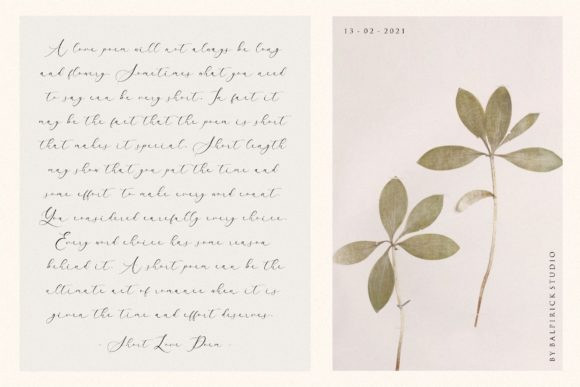 A love poem will not always be long
and flowery. Sometimes what you need
to say can be very short. In fact it
may be the fact that the poem is short
that makes it special. Short length
may show that you put the time and
some effort to make every word count.
You considered carefully every choice.
Every word choice has some reason
behind it. A short poem can be the
ultimate act of romance when it is
given the time and effort deserves.
- Short Love Poem -
13 - 02 - 2021
BY BALPIRICK STUDIO